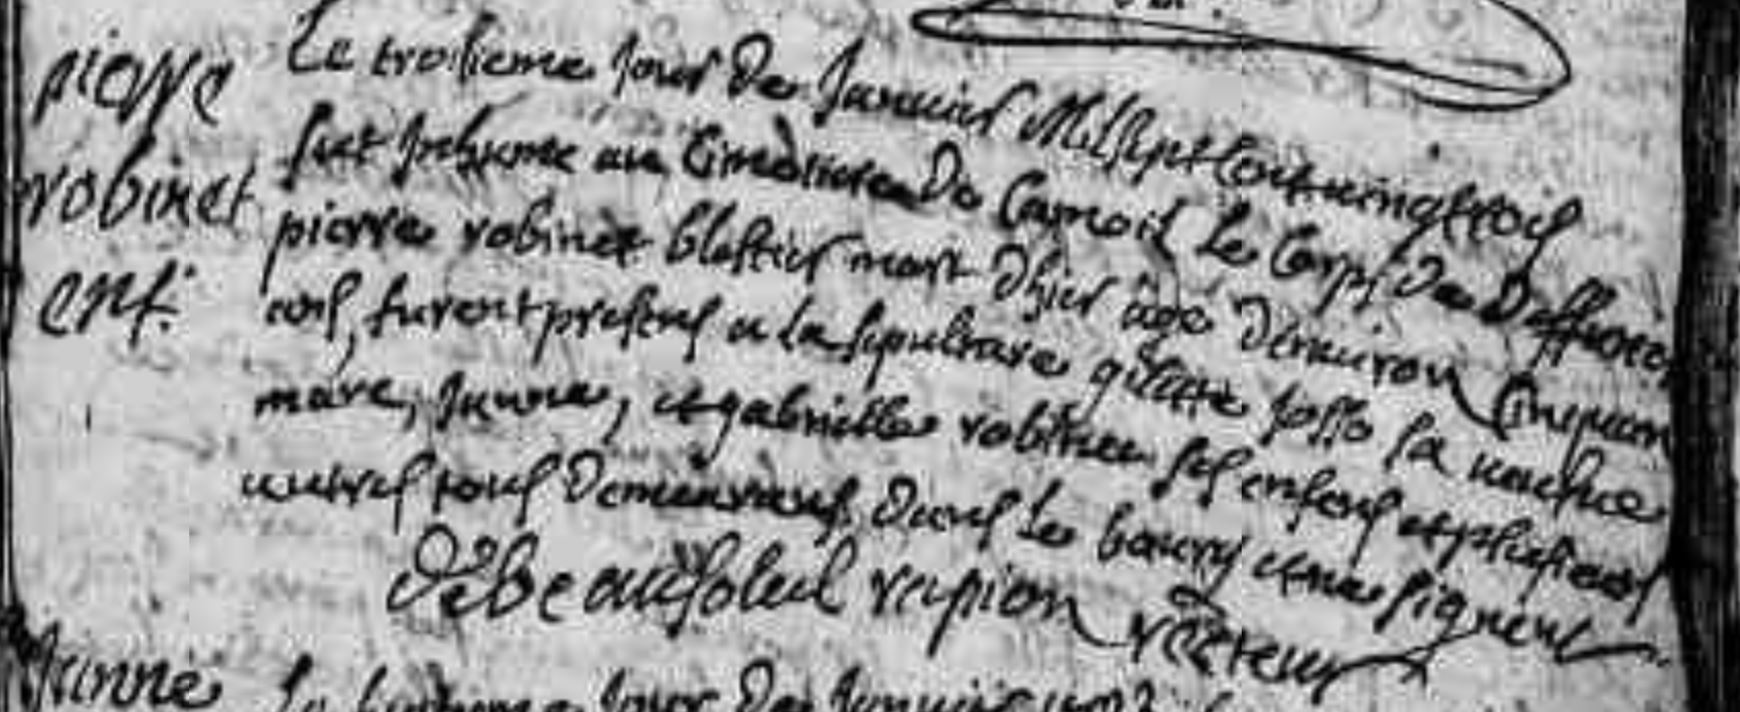 pierre
robinet
ent.
Le troisieme jour de Janvier Mil sept cent vingt trois
fut Inhumé au Cimetiere de Camoel Le Corps de Deffunct
pierre robinet mort d'hier agé d'environ Cinquante
ans, furent presens a la sepulture josso sa
Janne, et gabrielle robinet ses enfens et plusieurs
autres tous demeurans dans le bourg et ne signent
De beausoleil recteur
Janne
Jour de Janvier